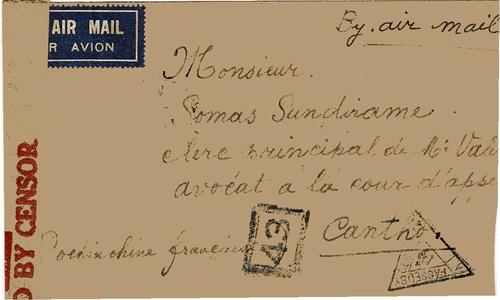 AIR MAIL
R AVION
By air mail
Monsieur.
Somas Sundirame
clerc principal de Mr Val
avocat à la cour d'appe
Cantho.
Cochinchine française
43
D BY CENSOR
PASSED BY